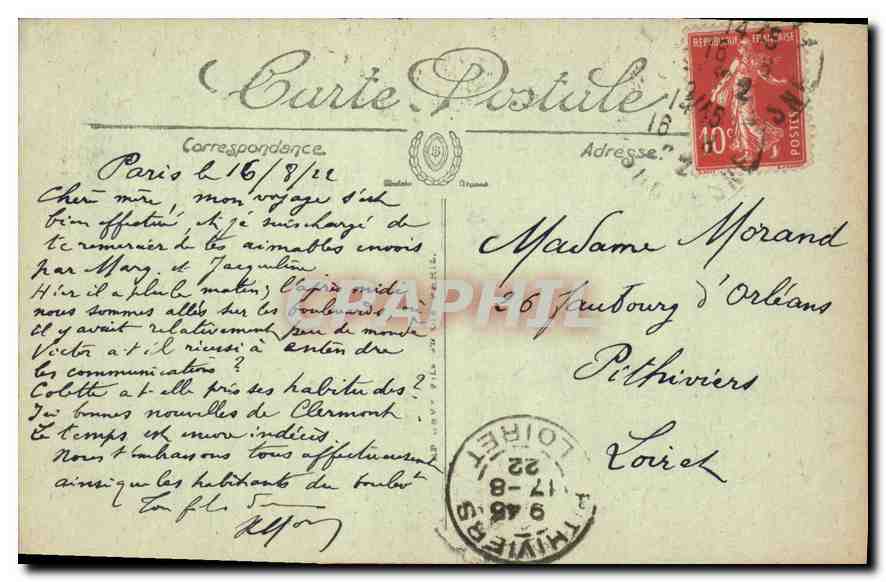 Carte Postale
RÉPUBLIQUE FRANÇAISE
10c
POSTES
Correspondance
Adresse
Paris le 16/8/22
Chère mère, mon voyage s'est
bien effectué, et je suis chargé de
te remercier de tes aimables envois
par Marg. et Jacqueline
Hier il a plu le matin; l'après midi
nous sommes allés sur les boulevards, où
il y avait relativement peu de monde
Victor a t-il réussi à entendre
les communications?
Colette a t-elle pris ses habitudes?
J'ai bonnes nouvelles de Clermont
Le temps est encore indécis.
Nous t'embrassons tous affectueusement
ainsi que les habitants du boulevt
Ton fils
Madame Morand
26 faubourg d'Orléans
Pithiviers
Loiret
CPAPHIL
PITHIVIERS
9 45
17-8
22
LOIRET